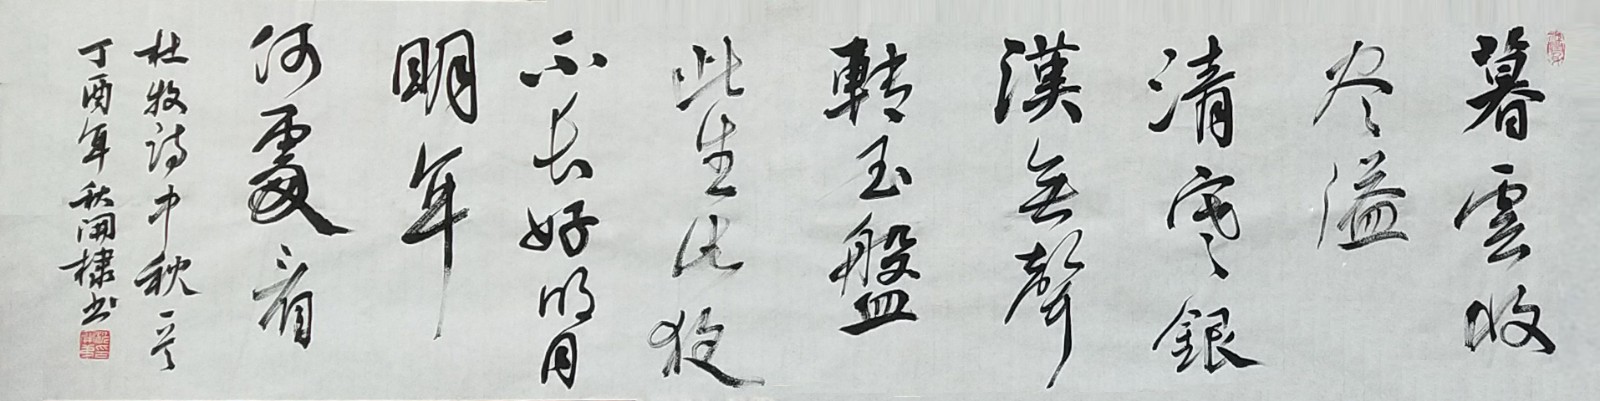 暮雲收
尽溢
清寒銀
漢無聲
轉玉盤
此生此夜
不長好明月
明年
何處看
杜牧詩中秋一首
丁酉年秋開棣书